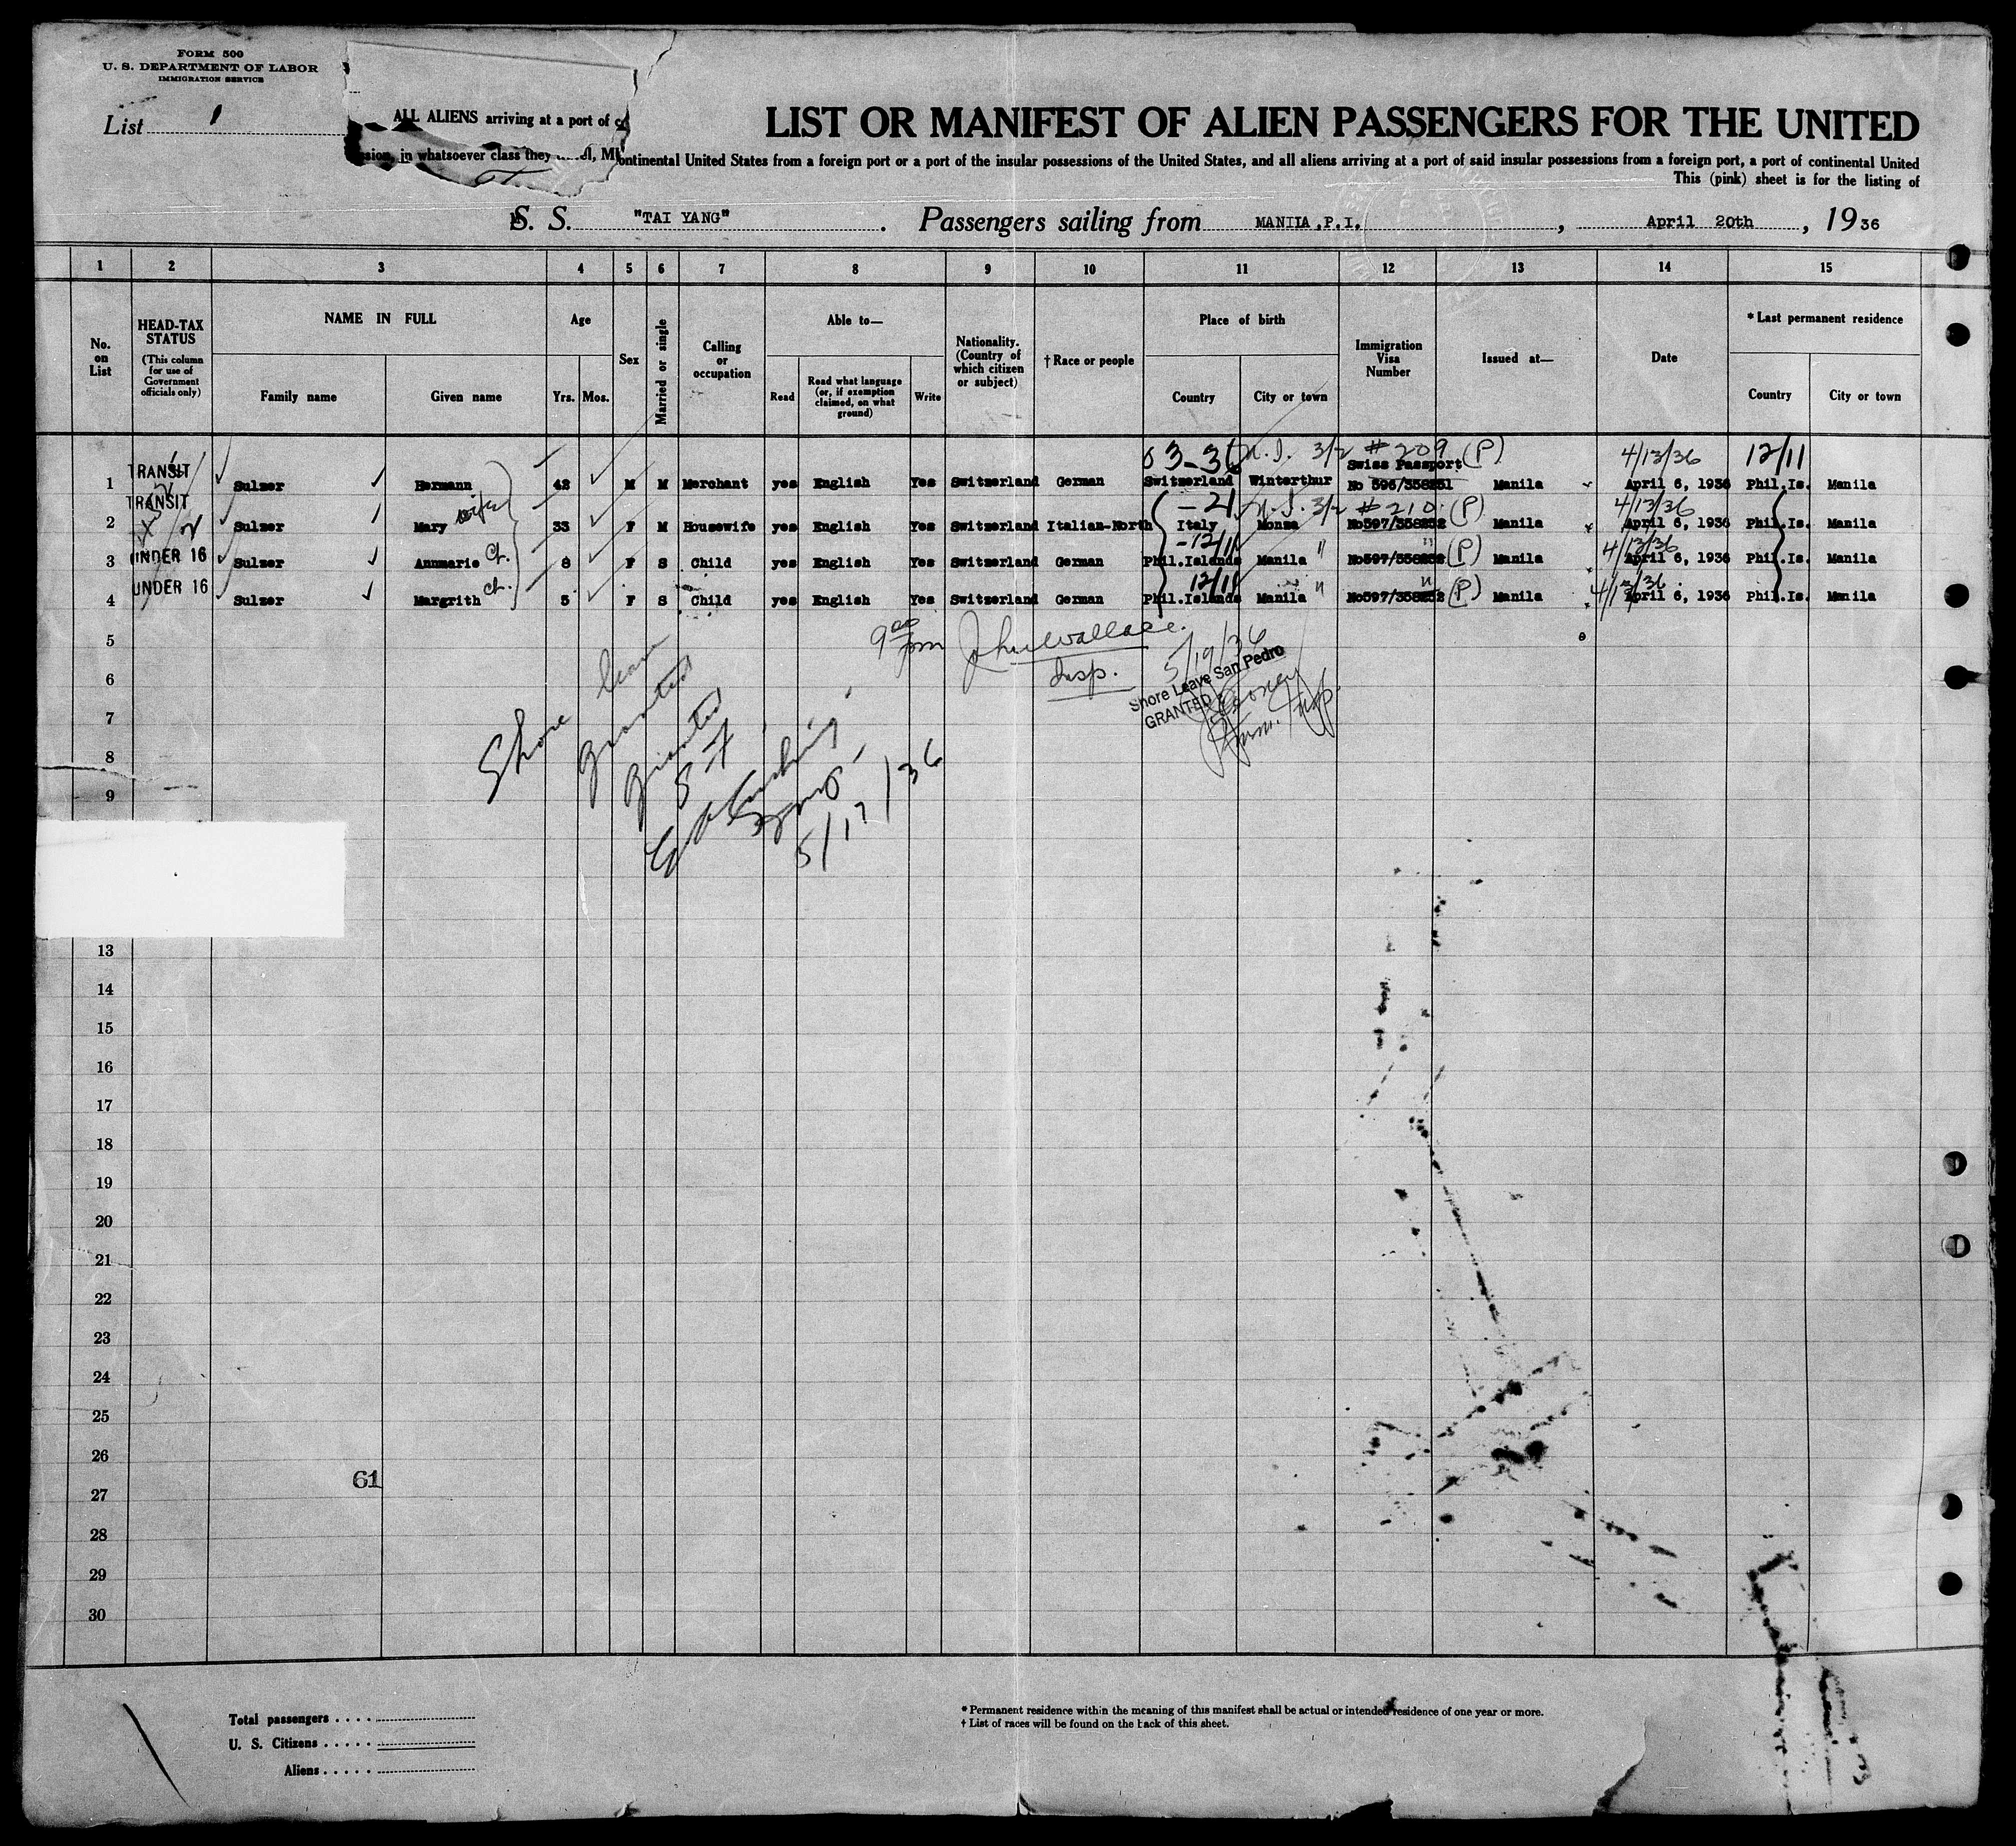 FORM 500
U. S. DEPARTMENT OF LABOR
IMMIGRATION SERVICE
List 1
ALL ALIENS arriving at a port of
in whatsoever class they
LIST OR MANIFEST OF ALIEN PASSENGERS FOR THE UNITED
ontinental United States from a foreign port or a port of the insular possessions of the United States, and all aliens arriving at a port of said insular possessions from a foreign port, a port of continental United
This (pink) sheet is for the listing of
S. S. "TAI YANG" . Passengers sailing from MANIIA,P.I. , April 20th , 1936
1 2 3 4 5 6 7 8 9 10 11 12 13 14 15
No. on List
HEAD-TAX STATUS
(This column for use of Government officials only)
NAME IN FULL
Family name Given name
Age
Yrs. Mos.
Sex
Married or single
Calling or occupation
Able to—
Read
Read what language (or, if exemption claimed, on what ground)
Write
Nationality. (Country of which citizen or subject)
† Race or people
Place of birth
Country City or town
Immigration Visa Number
Issued at—
Date
* Last permanent residence
Country City or town
3-36 N.I. 3/2 #209 (P) 4/13/36 12/11
Swiss Passport
1 TRANSIT Sulzer Hermann 42 M M Merchant yes English Yes Switzerland German Switzerland Winterthur No 596/358251 Manila April 6, 1936 Phil.Is. Manila
-21 N.I. 3/2 #210 (P) 4/13/36
2 TRANSIT Sulzer Mary wife 33 F M Housewife yes English Yes Switzerland Italian-North Italy Monza No597/358252 Manila April 6, 1936 Phil.Is. Manila
-12/11 " " 4/13/36
3 UNDER 16 Sulzer Annmarie Ch. 8 F S Child yes English Yes Switzerland German Phil.Islands Manila No597/358252 (P) Manila April 6, 1936 Phil.Is. Manila
12/11 " " 4/13/36
4 UNDER 16 Sulzer Margrith Ch. 5 F S Child yes English Yes Switzerland German Phil.Islands Manila No597/358252 (P) Manila April 6, 1936 Phil.Is. Manila
5
9 00 pm John Wallace
Insp.
5/19/36
Shore Leave San Pedro
GRANTED
Imm. Insp.
6
7
8
9
Shore leave
granted
granted
S F
5/17/36
13
14
15
16
17
18
19
20
21
22
23
24
25
26
61
27
28
29
30
Total passengers
U. S. Citizens
Aliens
* Permanent residence within the meaning of this manifest shall be actual or intended residence of one year or more.
† List of races will be found on the back of this sheet.